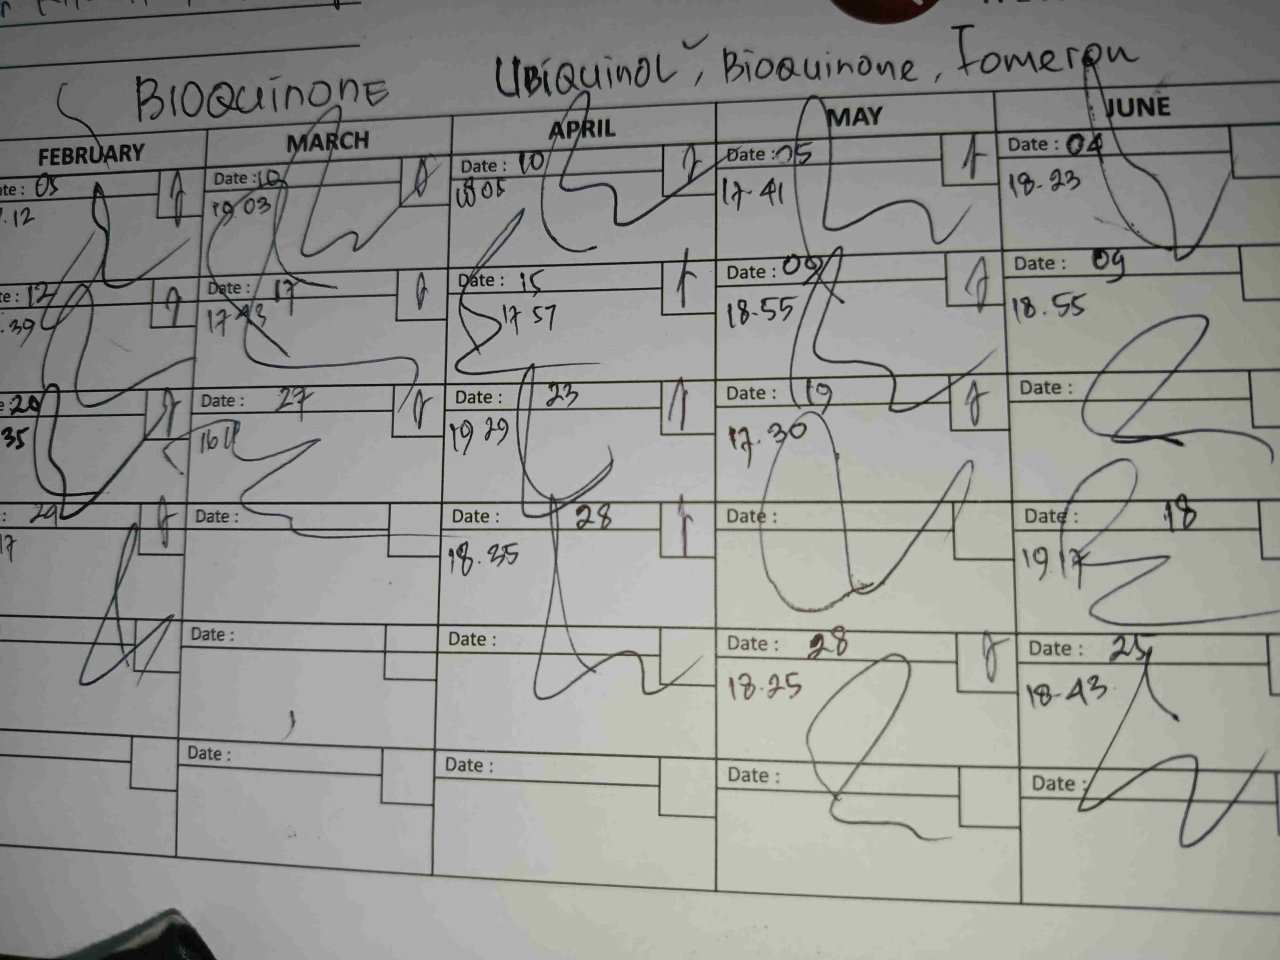 BIOQUINONE
UBIQUINOL, BIOQUINONE, Fomeron
FEBRUARY MARCH APRIL MAY JUNE
te: 05 Date: 10 Date: 10 Date: 05 Date: 04
.12 19 03 18 05 17-41 18-23
te: 12 Date: 17 Date: 15 Date: 09 Date: 09
.39 17 43 17 57 18-55 18.55
e: 20 Date: 27 Date: 23 Date: 19 Date:
35 19 29 17.30
: 29 Date: Date: 28 Date: Date: 18
17 18.35 19.17
Date: Date: Date: 28 Date: 25
18-25 18-43
Date: Date: Date: Date: